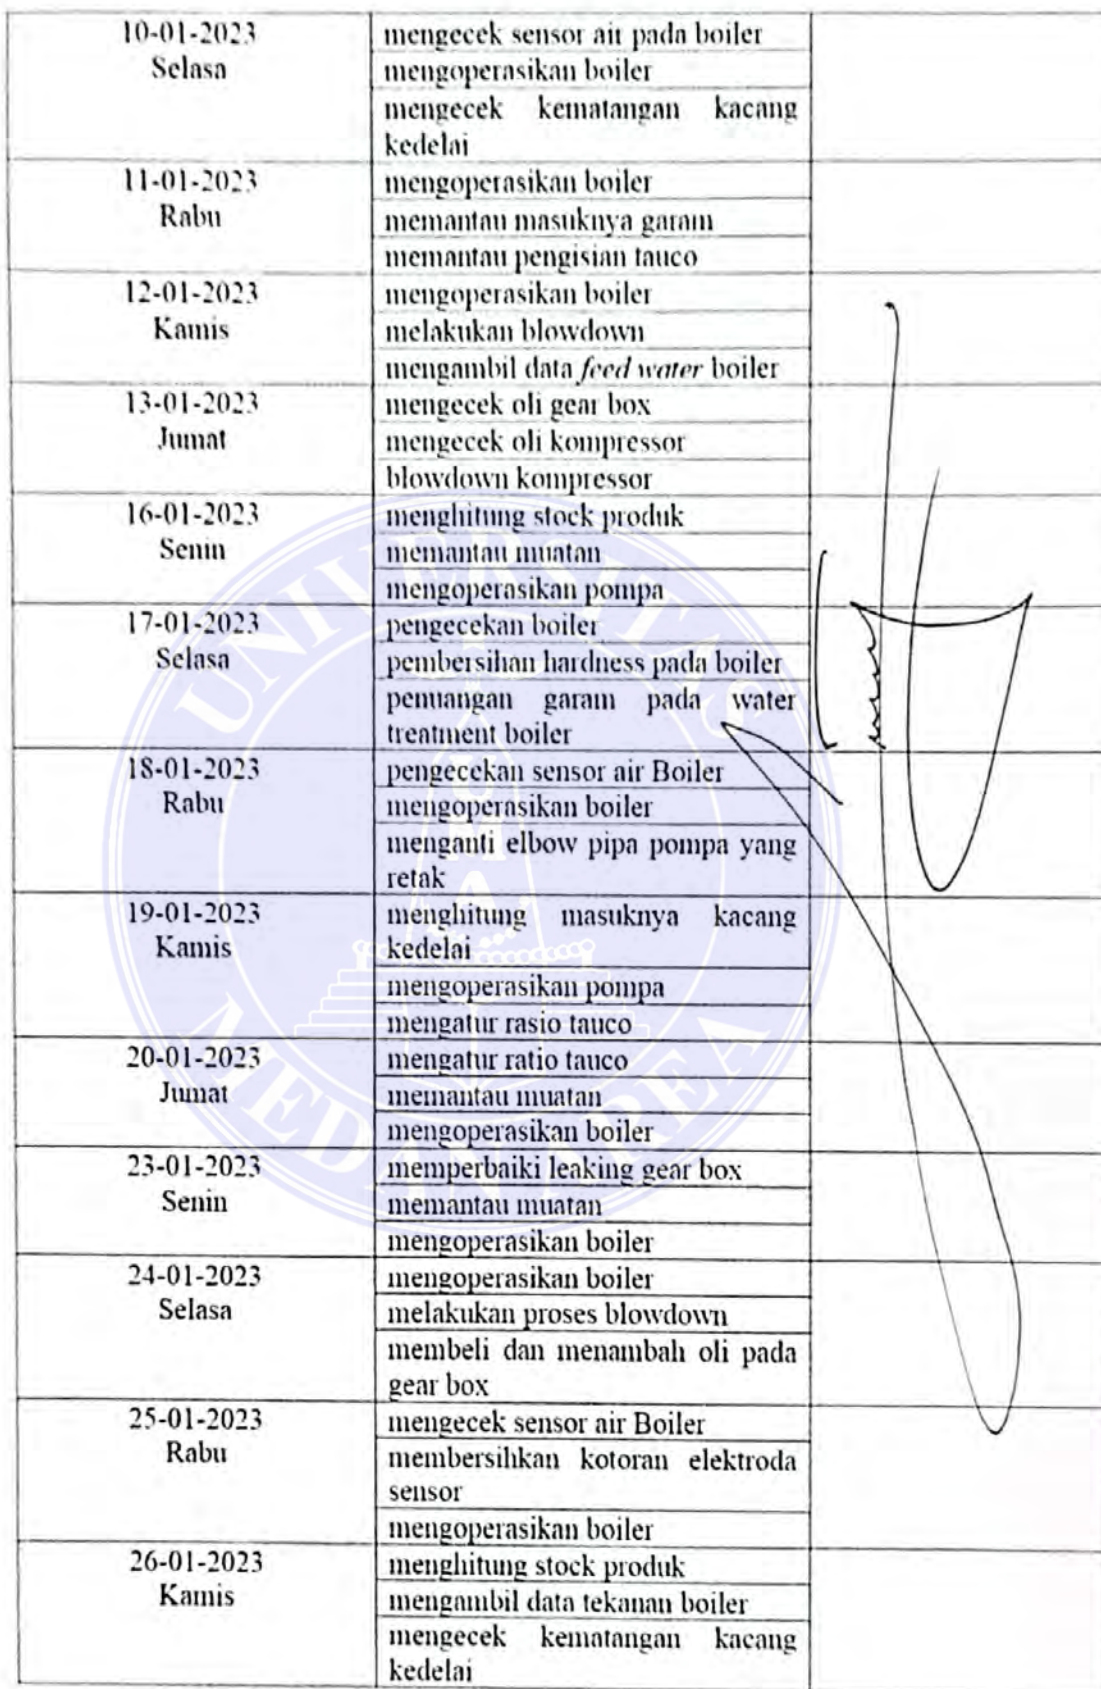 10-01-2023
Selasa
mengecek sensor air pada boiler
mengoperasikan boiler
mengecek kematangan kacang
kedelai
11-01-2023
Rabu
mengoperasikan boiler
memantau masuknya garam
memantau pengisian tauco
12-01-2023
Kamis
mengoperasikan boiler
melakukan blowdown
mengambil data feed water boiler
13-01-2023
Jumat
mengecek oli gear box
mengecek oli kompressor
blowdown kompressor
16-01-2023
Senin
menghitung stock produk
memantau muatan
mengoperasikan pompa
17-01-2023
Selasa
pengecekan boiler
pembersihan hardness pada boiler
penuangan garam pada water
treatment boiler
18-01-2023
Rabu
pengecekan sensor air Boiler
mengoperasikan boiler
menganti elbow pipa pompa yang
retak
19-01-2023
Kamis
menghitung masuknya kacang
kedelai
mengoperasikan pompa
mengatur rasio tauco
20-01-2023
Jumat
mengatur ratio tauco
memantau muatan
mengoperasikan boiler
23-01-2023
Senin
memperbaiki leaking gear box
memantau muatan
mengoperasikan boiler
24-01-2023
Selasa
mengoperasikan boiler
melakukan proses blowdown
membeli dan menambah oli pada
gear box
25-01-2023
Rabu
mengecek sensor air Boiler
membersihkan kotoran elektroda
sensor
mengoperasikan boiler
26-01-2023
Kamis
menghitung stock produk
mengambil data tekanan boiler
mengecek kematangan kacang
kedelai
UNIVERSITAS
MEDAN AREA